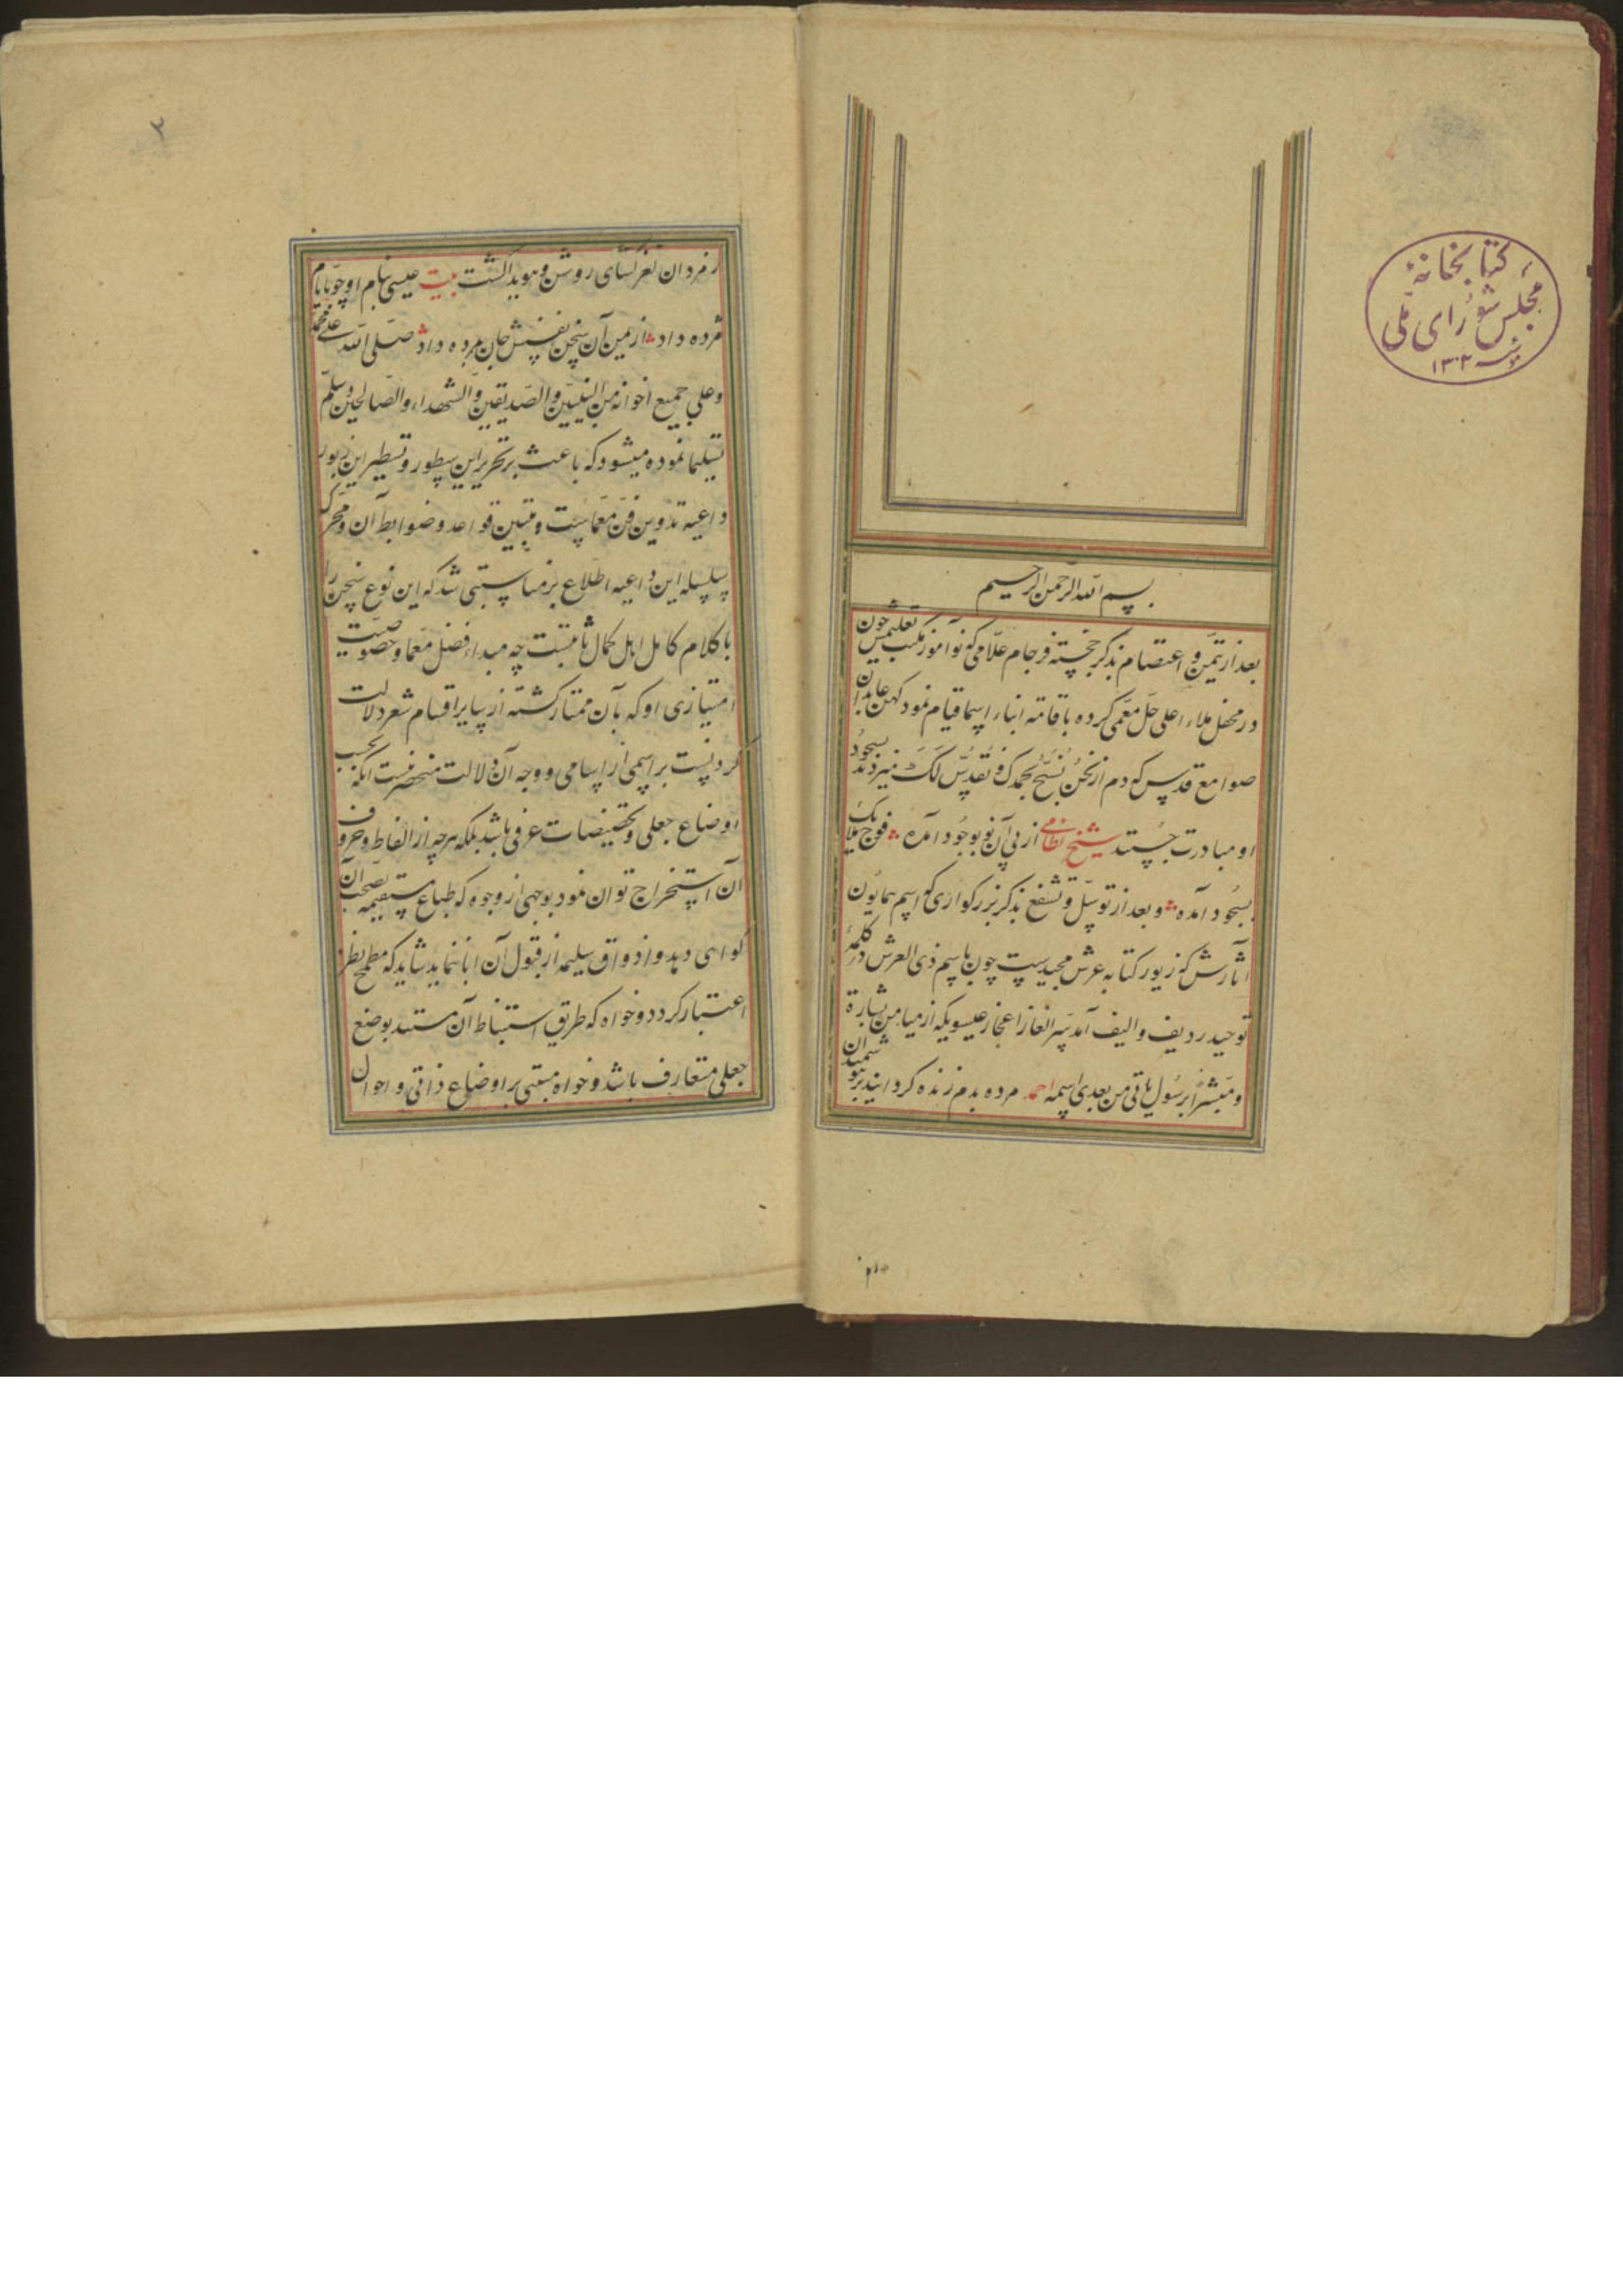 کتابخانهٔ
مجلس شورای ملّی
سنه ۱۳۰۲
بسم الله الرحمن الرحیم
بعد از تیمّن و اعتصام بذکر خجسته فرجام علّامی که نوآموز مکتب تعلیمش چون
در محفل ملاء اعلی حل معمّی کرده باقامته انباء اسما قیام نمود کهن عابدان
صوامع قدس که دم از نحن نُسَبّحُ بحمدک و نُقدّس لَکَ میزدند بسجود
او مبادرت جُستند شیخ نظامی از پی آن نو بوجُود آمده فوج ملایک
بسجُود آمده و بعد از توسّل و تشفع بذکر بزرکواری که اسم همایون
آثارش که زیور کتابه عرش مجیدست چون باسم ذی العرش در کلمهٔ
توحید ردیف و الیف آمد سِر الغاز اعجاز عیسوی که از میامن بشارة
و مبشّراً برسُول یاتی من بعدی اسمه احمد مرده بدم زنده کردانیدی بر
رمزدان نغز کشای روشن و هویدا کشت بیت عیسی بنام او چو بایام
مژده داد از یمن آن سخن نفسش جان بمرده داد صلّی الله علی محمد
و علی جمیع اخوانه من النبیّین والصّدیقین والشهداء والصّالحین و سلّم
تسلیما نموده میشود که باعث بر تحریر این سطور و تسطیر این زبور
داعیه تدوین فن معمّاست و تبیین قواعد و ضوابط آن و محرک
سلسله این داعیه اطلاع بر مناسبتی شد که این نوع سخن را
با کلام کامل اهل کمال ثابتست چه مبداء فضل معمّا و خصوصیّت
امتیازی او که بآن ممتاز کشته از سایر اقسام شعر دلالت
کردنست بر اسمی از اسامی و وجه آن دلالت منحصر نیست انکه بحسب
اوضاع جعلی و تخصیصات عرفی باشد بلکه هرچه از الفاظ و حروف
آن استخراج توان نمود بوجهی از وجوه که طباع مستقیمه بصحّت آن
کواهی دهد و اذواق سلیمه از قبول آن ابا ننماید شاید که مطمح نظر
اعتبار کردد و خواه که طریق استنباط آن مستند بوضع
جعلی متعارف باشد و خواه مبتنی بر اوضاع ذاتی و احوال